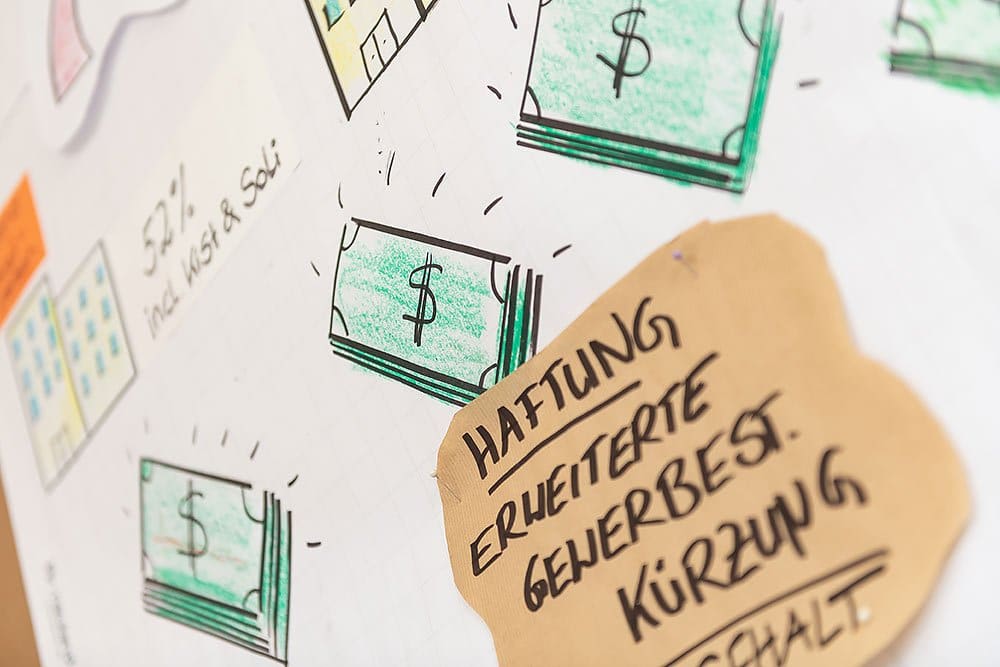 52%
incl. Kist & Soli
$
$
$
HAFTUNG
ERWEITERTE
GEWERBEST.
KÜRZUNG
GEHALT.